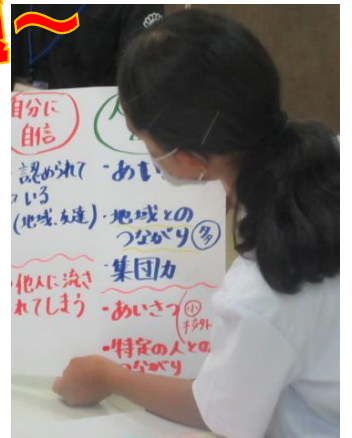 自分に
自信
認められて
いる
(地域、友達)
他人に流さ
れてしまう
人
・あい
・地域との
つながり 夕夕
・集団力
・あいさつ 小
・特定の人との
つながり